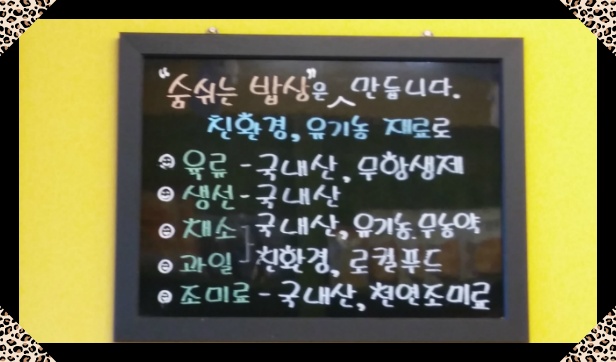 "숨쉬는 밥상"은 만듭니다.
친환경, 유기농 재료로
육류 - 국내산, 무항생제
생선 - 국내산
채소 국내산, 유기농.무농약
과일 친환경, 로컬푸드
조미료 - 국내산, 천연조미료